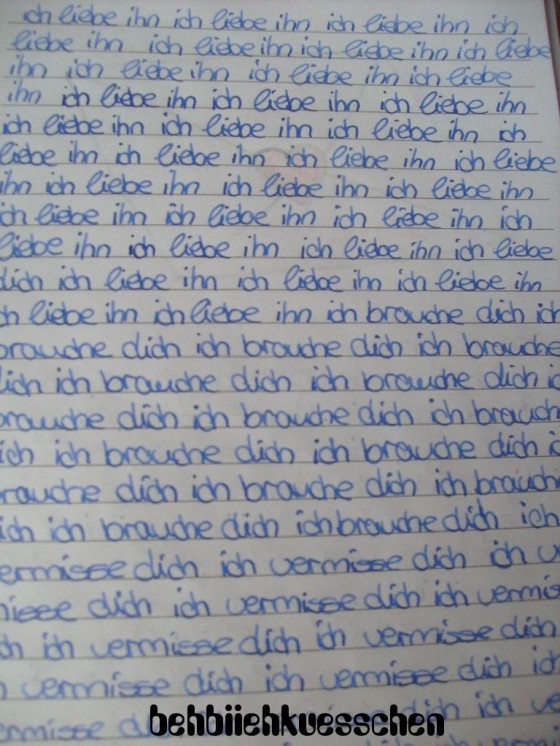 ich liebe ihn ich liebe ihn ich liebe ihn ich
liebe ihn ich liebe ihn ich liebe ihn ich liebe
ihn ich liebe ihn ich liebe ihn ich liebe
ihn ich liebe ihn ich liebe ihn ich liebe ihn
ich liebe ihn ich liebe ihn ich liebe ihn ich
liebe ihn ich liebe ihn ich liebe ihn ich liebe
ihn ich liebe ihn ich liebe ihn ich liebe ihn
ich liebe ihn ich liebe ihn ich liebe ihn ich
liebe ihn ich liebe ihn ich liebe ihn ich liebe
dich ich liebe ihn ich liebe ihn ich liebe ihn
ch liebe ihn ich liebe ihn ich brauche dich ich
brauche dich ich brauche dich ich brauche
ich ich brauche dich ich brauche dich
rauche dich ich brauche dich ich brauch
ich ich brauche dich ich brauche dich
rauche dich ich brauche dich ich brauch
ich ich brauche dich ich brauche dich ich
ermisse dich ich vermisse dich ich v
isse dich ich vermisse dich ich vermis
ch ich vermisse dich ich vermisse dich
vermisse dich ich vermisse dich ich
ermisse dich ich
behbiiehkuesschen